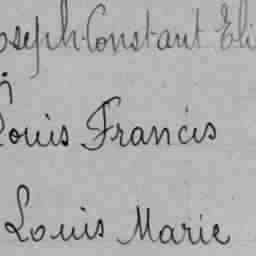 oseph Constant Eli
Louis Francis
Louis Marie